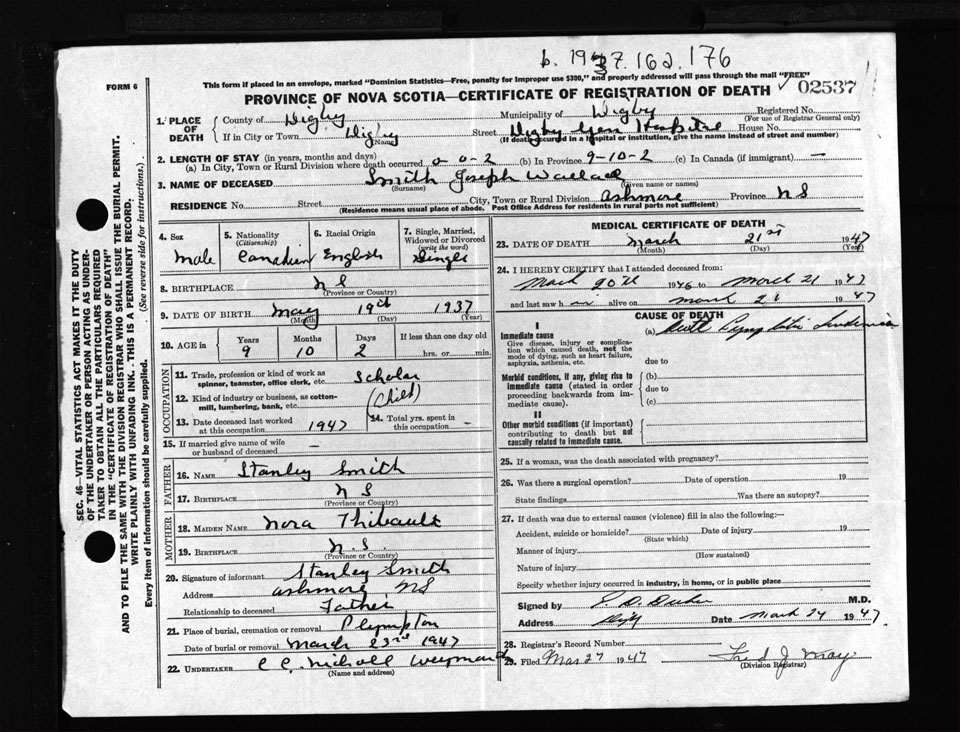 b. 1937. 162. 176
FORM 6
This form if placed in an envelope, marked "Dominion Statistics—Free, penalty for improper use $300," and properly addressed will pass through the mail "FREE"
02537
PROVINCE OF NOVA SCOTIA—CERTIFICATE OF REGISTRATION OF DEATH
1. PLACE OF DEATH
County of Digby Municipality of Digby Registered No.
(For use of Registrar General only)
If in City or Town Digby Street Digby Gen Hospital House No.
(Name) (If death occurred in a hospital or institution, give the name instead of street and number)
2. LENGTH OF STAY (in years, months and days)
(a) In City, Town or Rural Division where death occurred 0-0-2 (b) In Province 9-10-2 (c) In Canada (if immigrant) —
3. NAME OF DECEASED Smith Joseph Wallace
(Surname) (Given name or names)
RESIDENCE No. Street City, Town or Rural Division Ashmore Province NS
(Residence means usual place of abode. Post Office Address for residents in rural parts not sufficient)
4. Sex
Male
5. Nationality
(Citizenship)
Canadian
6. Racial Origin
English
7. Single, Married, Widowed or Divorced
(write the word)
Single
8. BIRTHPLACE NS
(Province or Country)
9. DATE OF BIRTH May 19th 1937
(Month) (Day) (Year)
10. AGE in
Years Months Days If less than one day old
9 10 2 hrs. or min.
OCCUPATION
11. Trade, profession or kind of work as spinner, teamster, office clerk, etc. Scholar
12. Kind of industry or business, as cotton-mill, lumbering, bank, etc. (Child)
13. Date deceased last worked at this occupation 1947
14. Total yrs. spent in this occupation —
15. If married give name of wife or husband of deceased —
FATHER
16. NAME Stanley Smith
17. BIRTHPLACE NS
(Province or Country)
MOTHER
18. MAIDEN NAME Nora Thibault
19. BIRTHPLACE N.S.
(Province or Country)
20. Signature of informant Stanley Smith
Address Ashmore NS
Relationship to deceased Father
21. Place of burial, cremation or removal Plympton
Date of burial or removal March 23rd 1947
22. UNDERTAKER C C Nicholl Weymouth
(Name and address)
MEDICAL CERTIFICATE OF DEATH
23. DATE OF DEATH March 21st 1947
(Month) (Day) (Year)
24. I HEREBY CERTIFY that I attended deceased from:
March 20th 1946 to March 21 1947
and last saw h im alive on March 21 1947
CAUSE OF DEATH
I
Immediate cause
Give disease, injury or complication which caused death, not the mode of dying, such as heart failure, asphyxia, asthenia, etc.
(a) Acute Lymphatic Leukemia
due to
Morbid conditions, if any, giving rise to immediate cause (stated in order proceeding backwards from immediate cause).
(b)
due to
(c)
II
Other morbid conditions (if important) contributing to death but not causally related to immediate cause.
25. If a woman, was the death associated with pregnancy?
26. Was there a surgical operation? Date of operation 19
State findings Was there an autopsy?
27. If death was due to external causes (violence) fill in also the following:—
Accident, suicide or homicide? Date of injury 19
(State which)
Manner of injury
(How sustained)
Nature of injury
Specify whether injury occurred in industry, in home, or in public place
Signed by M.D.
Address Digby Date March 24 1947
28. Registrar's Record Number
29. Filed Mar 27 1947 Fred J May
(Division Registrar)
SEC. 46—VITAL STATISTICS ACT MAKES IT THE DUTY
OF THE UNDERTAKER OR PERSON ACTING AS UNDER-
TAKER TO OBTAIN ALL THE PARTICULARS REQUIRED
IN THE "CERTIFICATE OF REGISTRATION OF DEATH"
AND TO FILE THE SAME WITH THE DIVISION REGISTRAR WHO SHALL ISSUE THE BURIAL PERMIT.
WRITE PLAINLY WITH UNFADING INK. . THIS IS A PERMANENT RECORD.
Every item of information should be carefully supplied. (See reverse side for instructions).